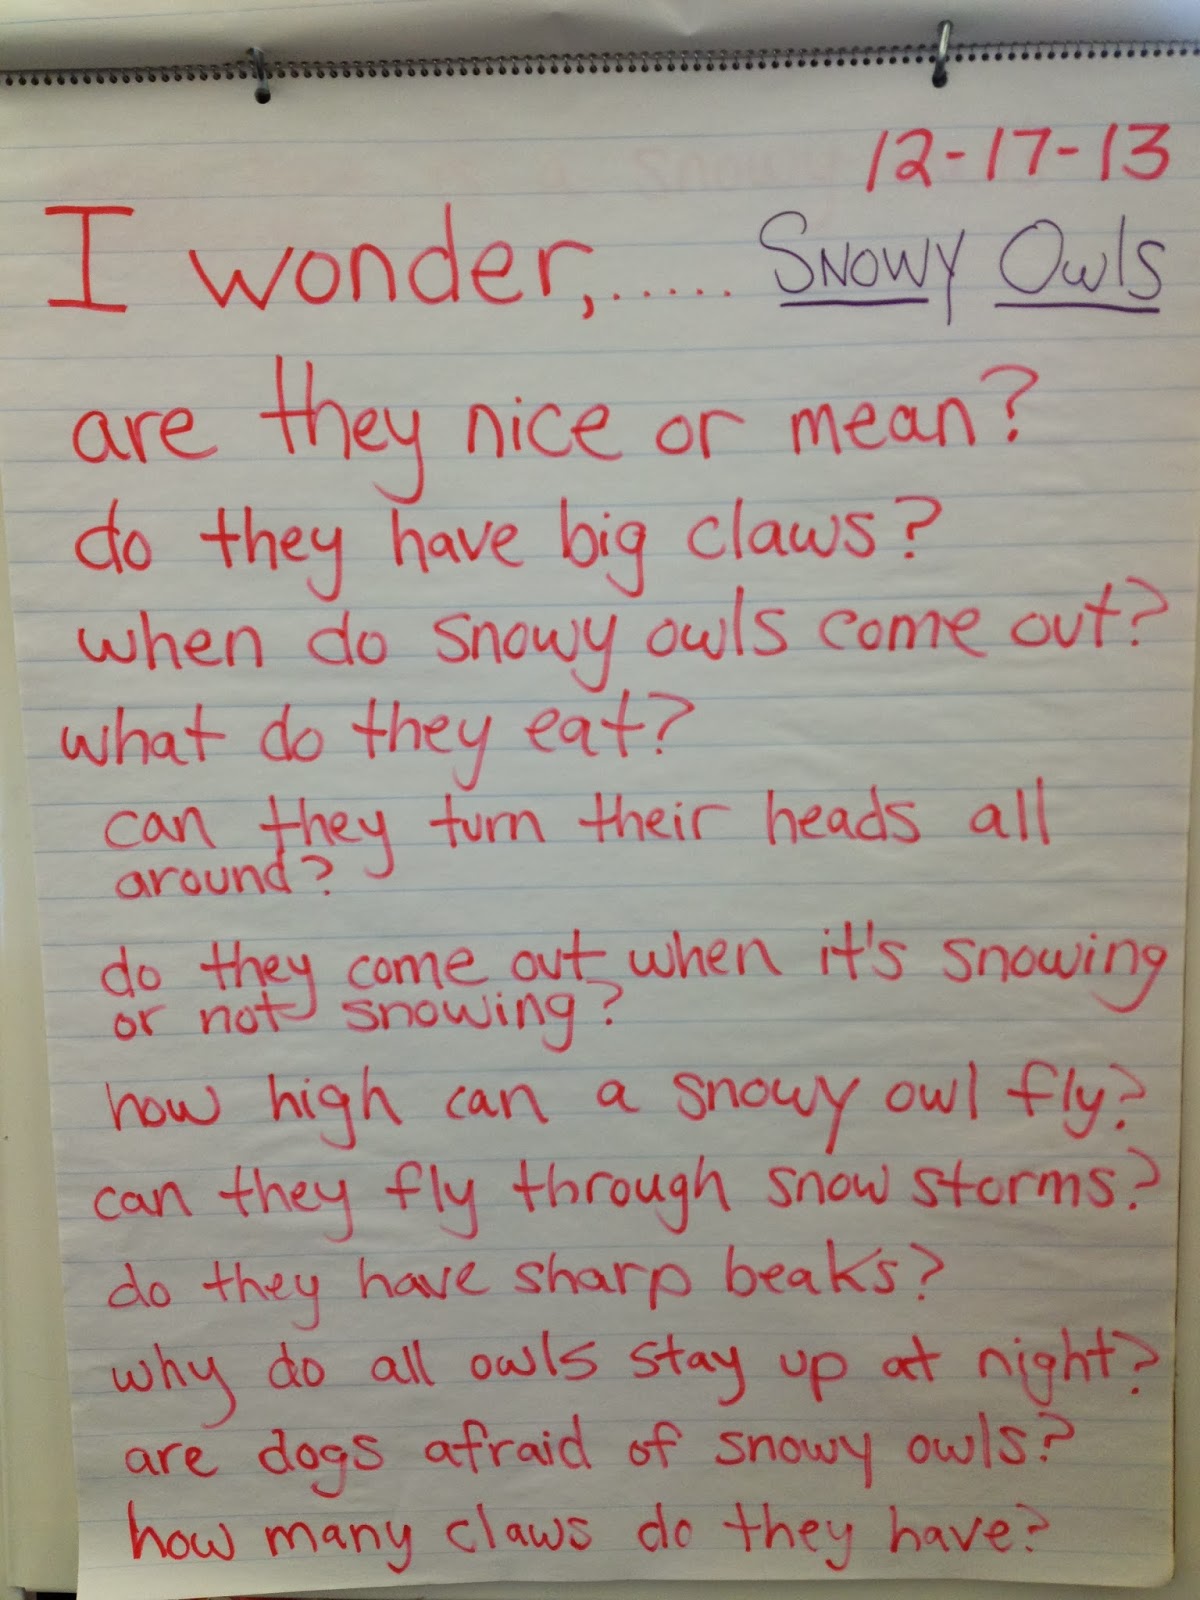 12-17-13
I wonder,..... Snowy Owls
are they nice or mean?
do they have big claws?
when do snowy owls come out?
what do they eat?
can they turn their heads all
around?
do they come out when it's snowing
or not snowing?
how high can a snowy owl fly?
can they fly through snow storms?
do they have sharp beaks?
why do all owls stay up at night?
are dogs afraid of snowy owls?
how many claws do they have?